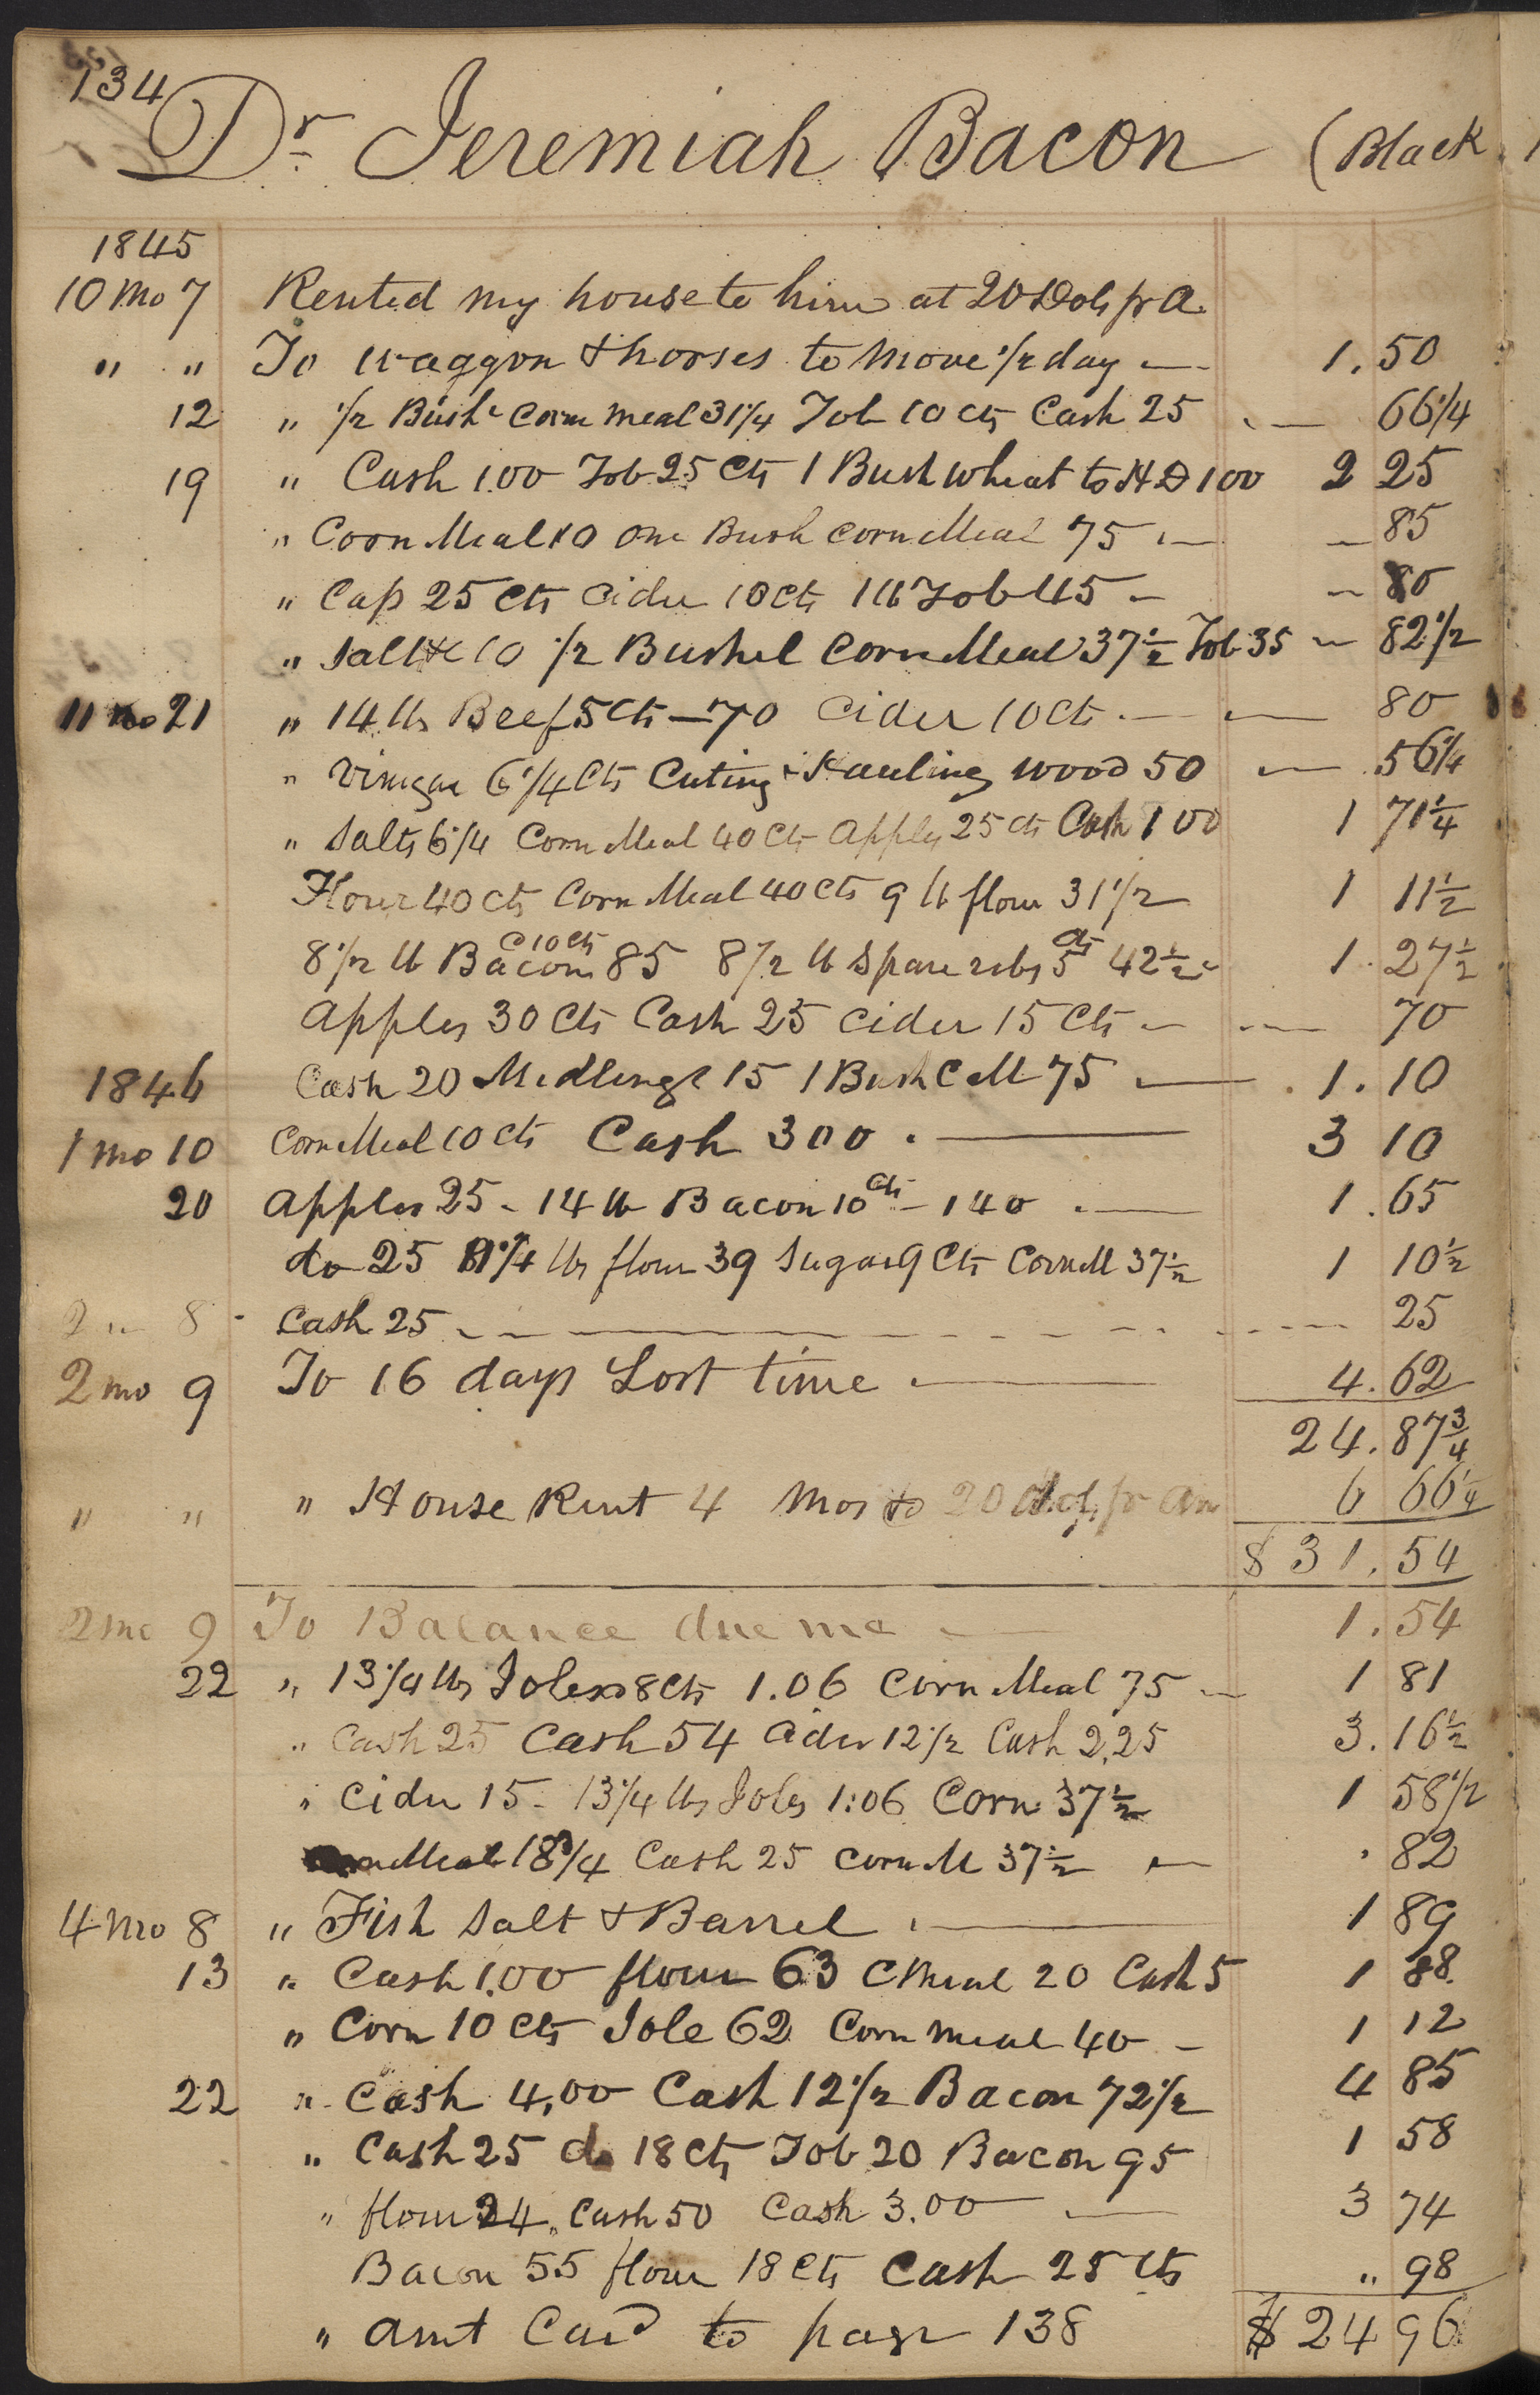 134
Dr Jeremiah Bacon (Black
1845
10 mo 7 Rented my house to him at 20 Dols pr a
" " To waggon & horses to move 1/2 day — 1.50
12 " 1/2 Bush Corn meal 31 1/4 Tob 10 cts Cash 25 — 66 1/4
19 " Cash 1.00 Tob 25 Cts 1 Bush wheat to H D 100 2 25
" Corn Meal 10 one Bush corn Meal 75 — 85
" Cap 25 cts Cider 10 cts 1 lb Tob 45 — 80
" Salt &c 10 1/2 Bushel Corn Meal 37 1/2 Tob 35 — 82 1/2
11 mo 21 " 14 lbs Beef 5 cts — 70 Cider 10 Cts — 80
" Vinegar 6 1/4 Cts Cuting & Hauling wood 50 — 56 1/4
" Salts 6 1/4 Corn Meal 40 Cts apples 25 cts Cash 1 00 1 71 1/4
Flour 40 cts Corn Meal 40 cts 9 lb flour 31 1/2 1 11 1/2
8 1/2 lb Bacon @ 10 cts 85 8 1/2 lb Spare ribs 5 cts 42 1/2 1.27 1/2
apples 30 Cts Cash 25 cider 15 Cts — 70
1846 Cash 20 Midlings 15 1 Bush C M 75 — 1.10
1 mo 10 Corn Meal 10 cts Cash 300 — 3 10
20 apples 25 - 14 lb Bacon 10 cts - 140 — 1.65
do 25 1/4 lbs flour 39 Sugar 9 Cts Corn M 37 1/2 1 10 1/2
2 " 8 - Cash 25 — 25
2 mo 9 To 16 days Lost time — 4.62
24.87 3/4
" " " House Rent 4 Mos @ 20 dols pr an 6 66 1/4
$31.54
2 mo 9 To Balance due me — 1.54
22 " 13 1/4 lbs Joles @ 8 Cts 1.06 Corn Meal 75 — 1 81
" Cash 25 Cash 54 Cider 12 1/2 Cash 2.25 3.16 1/2
" Cider 15 - 13 1/4 lbs Joles 1:06 Corn 37 1/2 1 58 1/2
Meal 18 3/4 Cash 25 Corn M 37 1/2 — 82
4 mo 8 " Fish Salt & Barrel — 1 89
13 " Cash 1.00 flour 63 C Meal 20 Cash 5 1 88
" Corn 10 cts Jole 62 Corn meal 40 - 1 12
22 " Cash 4.00 Cash 12 1/2 Bacon 72 1/2 4 85
" Cash 25 do 18 cts Tob 20 Bacon 95 1 58
" flour 24 Cash 50 Cash 3.00 — 3 74
Bacon 55 flour 18 Cts Cash 25 Cts " 98
" Amt Card to page 138 $24 96